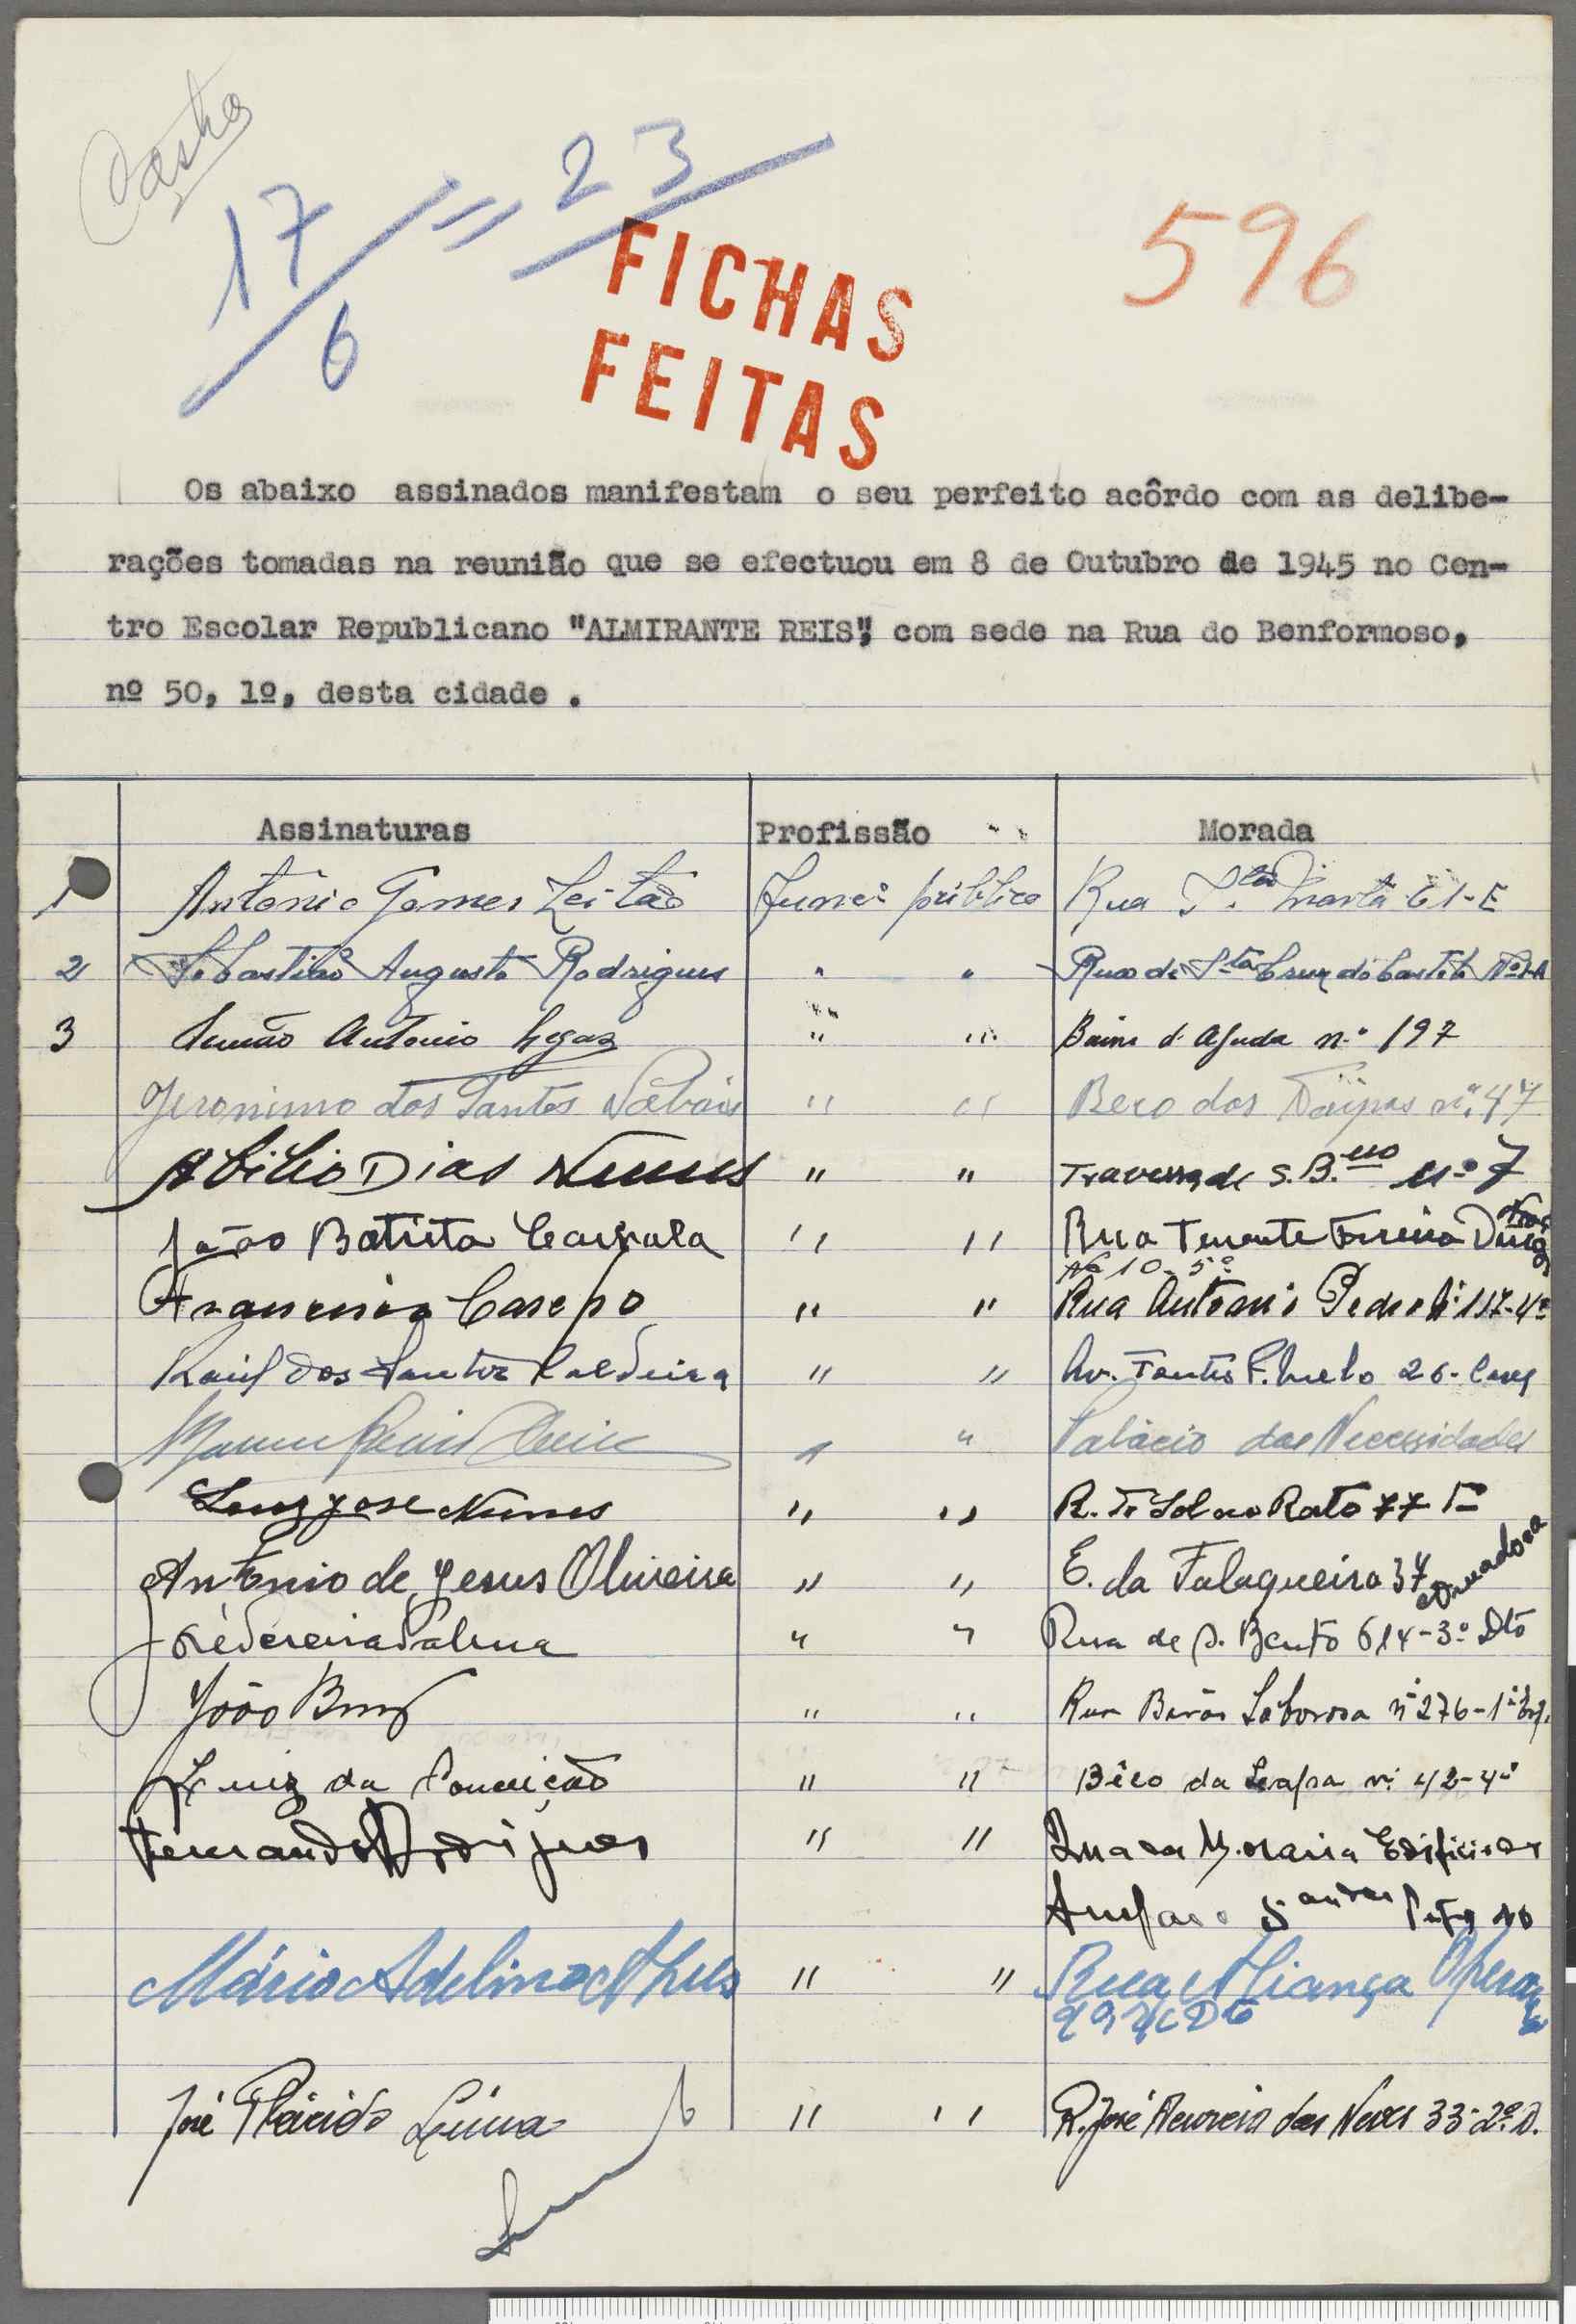 Castro
17/6 = 23
596
FICHAS
FEITAS
Os abaixo assinados manifestam o seu perfeito acôrdo com as delibe-
rações tomadas na reunião que se efectuou em 8 de Outubro de 1945 no Cen-
tro Escolar Republicano "ALMIRANTE REIS", com sede na Rua do Benformoso,
nº 50, 1º, desta cidade .
Assinaturas Profissão Morada
1 António Gomes Leitão Funcº público Rua Sta Marta 61-E
2 Sebastião Augusto Rodrigues " " Rua de Sta Cruz do Castelo Nº
3 Simão António " " d'Ajuda n.º 197
Jeronimo dos Santos " " Beco dos n.º 47
Abilio Dias Nunes " " Travessa de S. B.eno nº 7
João Batista " " Rua Tenente Ferreira Durão
Nº 10-5º
Francisco " " Rua António Pedro 117-4º
Raúl dos Santos Caldeira " " Av. Fontes P. Melo 26-Cave
" " Palácio das Necessidades
Luiz José Nunes " " R. do Sol ao Rato 77 1º
António de Jesus Oliveira " " E. da Falagueira 37 Amadora
Palma " " Rua de S. Bento 614-3º Dto
João " " Rua Barão Saborosa nº 276-1º Esq.
Luiz da Conceição " " Bêco da nº 42-4º
Fernando Rodrigues " " Rua da Mouraria
5 andar
Mário Adelino " " Rua Aliança Operaria
José Plácido " " R. José das Neves 33-2º D.